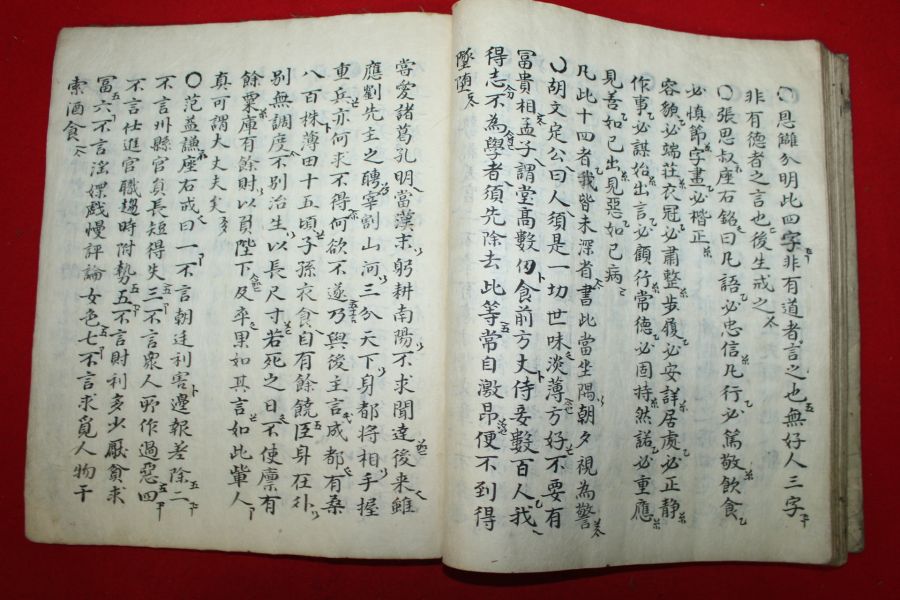 〇恩雠分明此四字非有道者言之也無好人三字
非有德者之言也後生戒之
〇張思叔座右銘曰凡語必忠信凡行必篤敬飲食
必慎節字畫必楷正
容貌必端壮衣冠必肅整步履必安詳居處必正静
作事必謀始出言必顧行常德必固持然諾必重應
見善如己出見惡如己病
凡此十四者我皆未深省書此當坐隅朝夕視為警
〇胡文定公曰人須是一切世味淡薄方好不要有
冨貴相孟子謂堂髙數仞食前方丈侍妾數百人我
得志不為學者須先除去此等常自激昂便不到得
墜堕
當愛諸葛孔明當漢末躬耕南陽不求聞達後来雖
應劉先主之聘宰割山河三分天下身都将相手握
重兵亦何求不得何欲不遂乃與後主言成都有桑
八百株薄田十五頃子孫衣食自有餘饒臣身在外
別無調度不別治生以長尺寸若死之日不使廪有
餘粟庫有餘財以負陛下及卒果如其言如此軰人
真可謂大丈夫矣
〇范益謙座右戒曰一不言朝廷利害邊報差除二
不言州縣官員長短得失三不言衆人所作過惡四
不言仕進官職趨時附勢五不言財利多少厭貧求
冨六不言淫媟戱慢評論女色七不言求覓人物干
索酒食